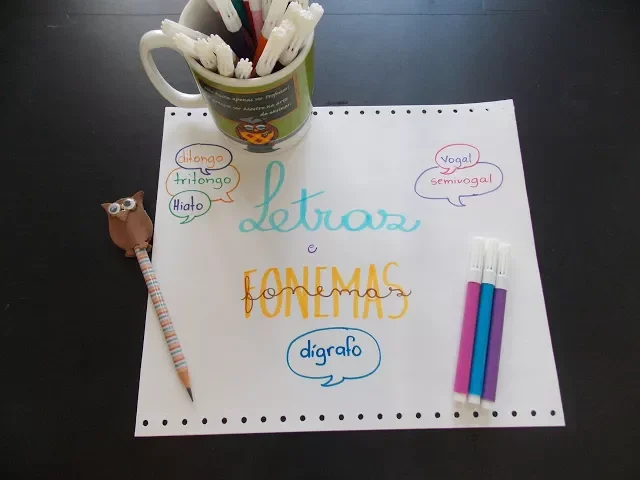 ditongo
tritongo
Hiato
vogal
semivogal
Letras
e
FONEMAS
fonemas
dígrafo